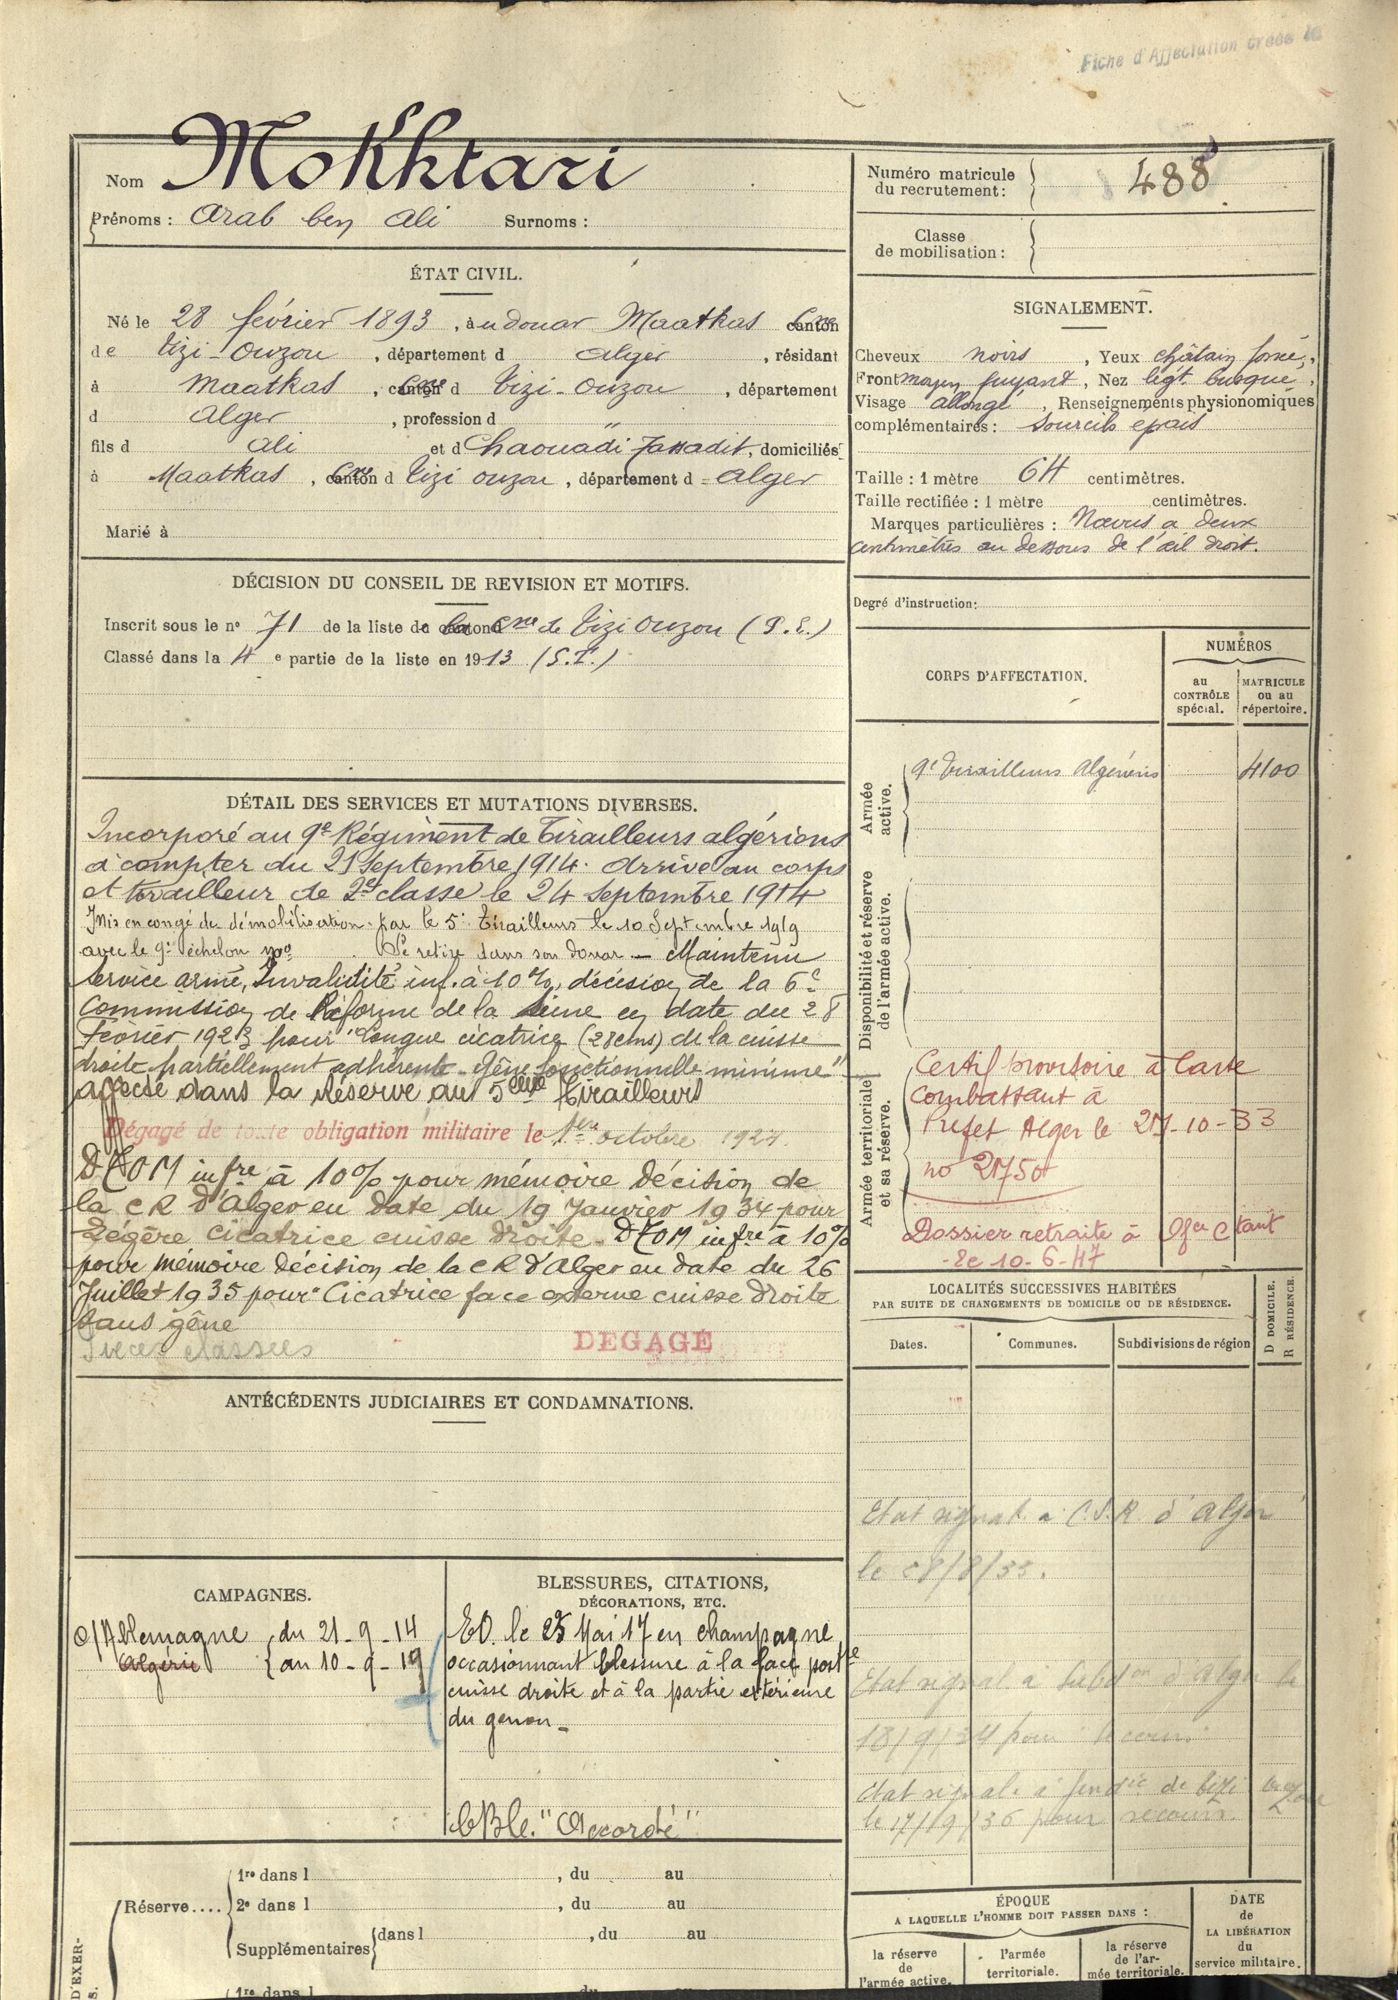 Fiche d'Affectation créée le
Nom Mokhtari
Prénoms : Arab ben Ali Surnoms :
Numéro matricule
du recrutement : 488
Classe
de mobilisation :
ÉTAT CIVIL.
Né le 28 février 1893, au douar Maatkas canton Cne
de Tizi-Ouzou, département d Alger, résidant
à Maatkas, canton Cne d Tizi-Ouzou, département
d Alger, profession d
fils d Ali et d Chaouadi Tassadit, domiciliés
à Maatkas, canton Cne d Tizi ouzou, département d Alger
Marié à
SIGNALEMENT.
Cheveux noirs, Yeux châtain foncé,
Front moyen fuyant, Nez légt busqué,
Visage allongé, Renseignements physionomiques
complémentaires : Sourcils épais
Taille : 1 mètre 64 centimètres.
Taille rectifiée : 1 mètre centimètres.
Marques particulières : Nœvus à deux
centimètres au dessous de l'œil droit.
Degré d'instruction :
DÉCISION DU CONSEIL DE REVISION ET MOTIFS.
Inscrit sous le n° 71 de la liste de la canton Cne de Tizi Ouzou (P.E.)
Classé dans la 4e partie de la liste en 1913 (S.T.)
CORPS D'AFFECTATION.
NUMÉROS
au
CONTRÔLE
spécial.
MATRICULE
ou au
répertoire.
Armée
active.
9e Tirailleurs Algériens 4100
Disponibilité et réserve
de l'armée active.
Armée territoriale
et sa réserve.
Certif provisoire à Carte
Combattant à
Préfet Alger le 27-10-33
no 21750
Dossier retraite à
Le 10-6-47
DÉTAIL DES SERVICES ET MUTATIONS DIVERSES.
Incorporé au 9e Régiment de Tirailleurs algériens
à compter du 21 Septembre 1914. Arrivé au corps
et tirailleur de 2e classe le 24 Septembre 1914
Mis en congé de démobilisation par le 5e Tirailleurs le 10 Septembre 1919
avec le 9e échelon no Se retire dans son douar - Maintenu
Service armé, Invalidité inf. à 10%, décision de la 6e
Commission de Réforme de la Seine en date du 28
Février 1923 pour "longue cicatrice (28cms) de la cuisse
droite partiellement adhérente. Gêne fonctionnelle minime"
affecté dans la Réserve au 5eme Tirailleurs
Dégagé de toute obligation militaire le 1er octobre 1927.
infre à 10% pour mémoire décision de
la CR d'Alger en date du 19 Janvier 1934 pour
Légère cicatrice cuisse droite. infre à 10%
pour mémoire décision de la CR d'Alger en date du 26
Juillet 1935 pour "Cicatrice face externe cuisse droite
sans gêne
Pièces classées
DEGAGÉ
LOCALITÉS SUCCESSIVES HABITÉES
PAR SUITE DE CHANGEMENTS DE DOMICILE OU DE RÉSIDENCE.
Dates. Communes. Subdivisions de région
D DOMICILE.
R RÉSIDENCE.
Etat signal. à C.S.R d'Alger
le 28/8/33.
Etat signal à Subdon d'Alger le
18/9/34 pour secours
Etat signal. à de Tizi Ouzou
le 17/9/36 pour secours.
ANTÉCÉDENTS JUDICIAIRES ET CONDAMNATIONS.
CAMPAGNES.
C/Allemagne du 21-9-14
Algérie au 10-9-19
BLESSURES, CITATIONS,
DÉCORATIONS, ETC.
EO. le 25 Mai 17 en champagne
occasionnant blessure à la face postre
cuisse droite et à la partie extérieure
du genou -
"Accordé"
Réserve....
1re dans l , du au
2e dans l , du au
Supplémentaires dans l , du au
1re dans l du au
D'EXER-
S.
ÉPOQUE
A LAQUELLE L'HOMME DOIT PASSER DANS :
la réserve
de
l'armée active.
l'armée
territoriale.
la réserve
de l'ar-
mée territoriale.
DATE
de
LA LIBÉRATION
du
service militaire.